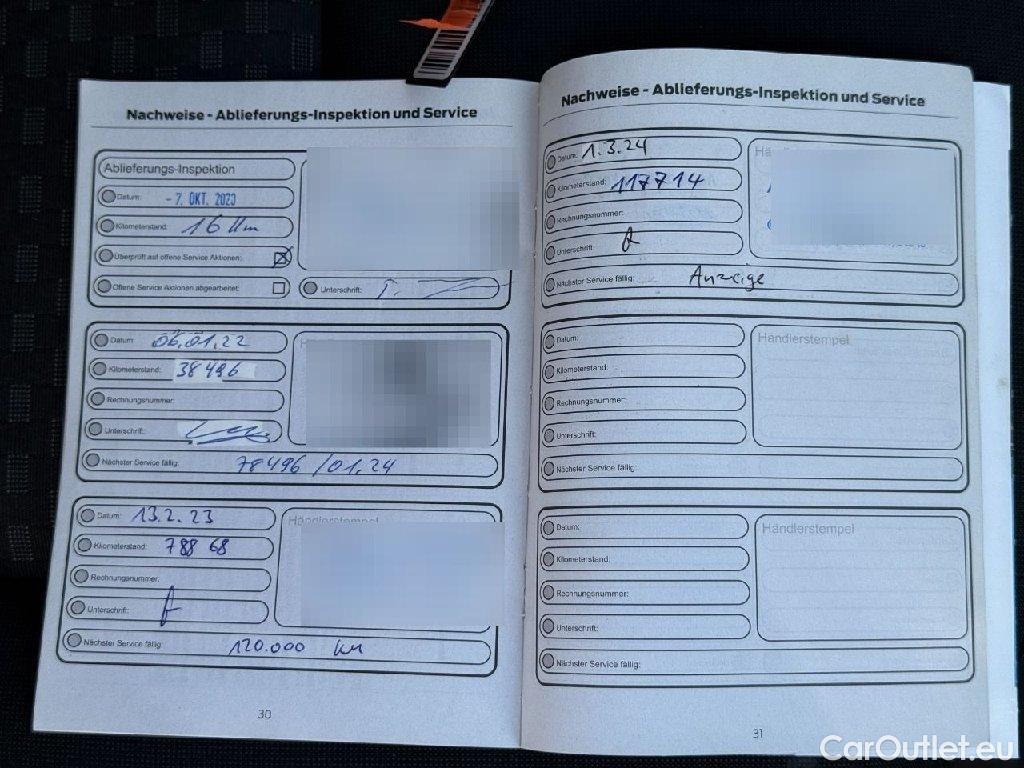 Nachweise - Ablieferungs-Inspektion und Service
Ablieferungs-Inspektion
Datum: - 7. OKT. 2020
Kilometerstand: 16 Km
Überprüft auf offene Service Aktionen:
Offene Service Aktionen abgearbeitet:
Unterschrift:
Datum: 06.01.22
Kilometerstand: 38496
Rechnungsnummer:
Unterschrift:
Nächster Service fällig: 78496 /01.24
Datum: 13.2.23
Händlerstempel
Kilometerstand: 788 68
Rechnungsnummer:
Unterschrift:
Nächster Service fällig: 120.000 km
30
Nachweise - Ablieferungs-Inspektion und Service
Datum: 1.3.24
Kilometerstand: 117714
Rechnungsnummer:
Unterschrift:
Nächster Service fällig: Anzeige
Datum:
Händlerstempel
Kilometerstand:
Rechnungsnummer:
Unterschrift:
Nächster Service fällig:
Datum:
Händlerstempel
Kilometerstand:
Rechnungsnummer:
Unterschrift:
Nächster Service fällig:
31
CarOutlet.eu